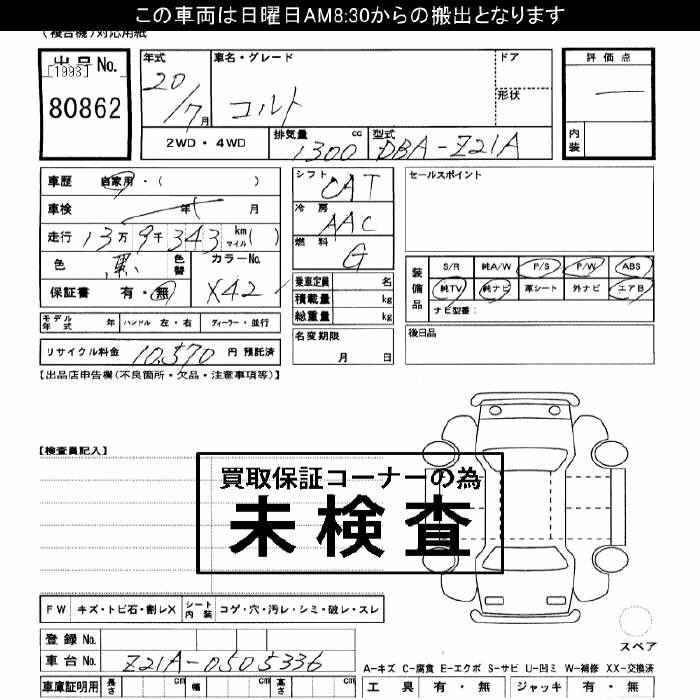 この車両は日曜日AM8:30からの搬出となります
(複合機)対応用紙
出品No.
[1993]
80862
年式 車名・グレード ドア 評価点
20/7月 コルト 形状 —
2WD・4WD 排気量 1300 cc 型式 DBA-Z21A 内装
車歴 自家用・( )
車検 年 月
走行 13万9千343 km マイル ( )
色 黒 色替 カラーNo. X42
保証書 有・無
モデル年式 年 ハンドル 左・右 ディーラー・並行
リサイクル料金 10,570 円 預託済
シフト CAT
冷房 AAC
燃料 G
乗車定員 名
積載量 kg
総重量 kg
名変期限
月 日
セールスポイント
装備品
S/R 純A/W P/S P/W ABS
純TV 純ナビ 革シート 外ナビ エアB
ナビ型番:
後日品
【出品店申告欄(不良箇所・欠品・注意事項等)】
【検査員記入】
買取保証コーナーの為
未検査
FW キズ・トビ石・割レX シート内装 コゲ・穴・汚レ・シミ・破レ・スレ
登録No.
車台No. Z21A-0505336
車庫証明用 長さ cm 幅 cm 高さ cm
スペア
A-キズ C-腐食 E-エクボ S-サビ U-凹ミ W-補修 XX-交換済
工具 有・無 ジャッキ 有・無